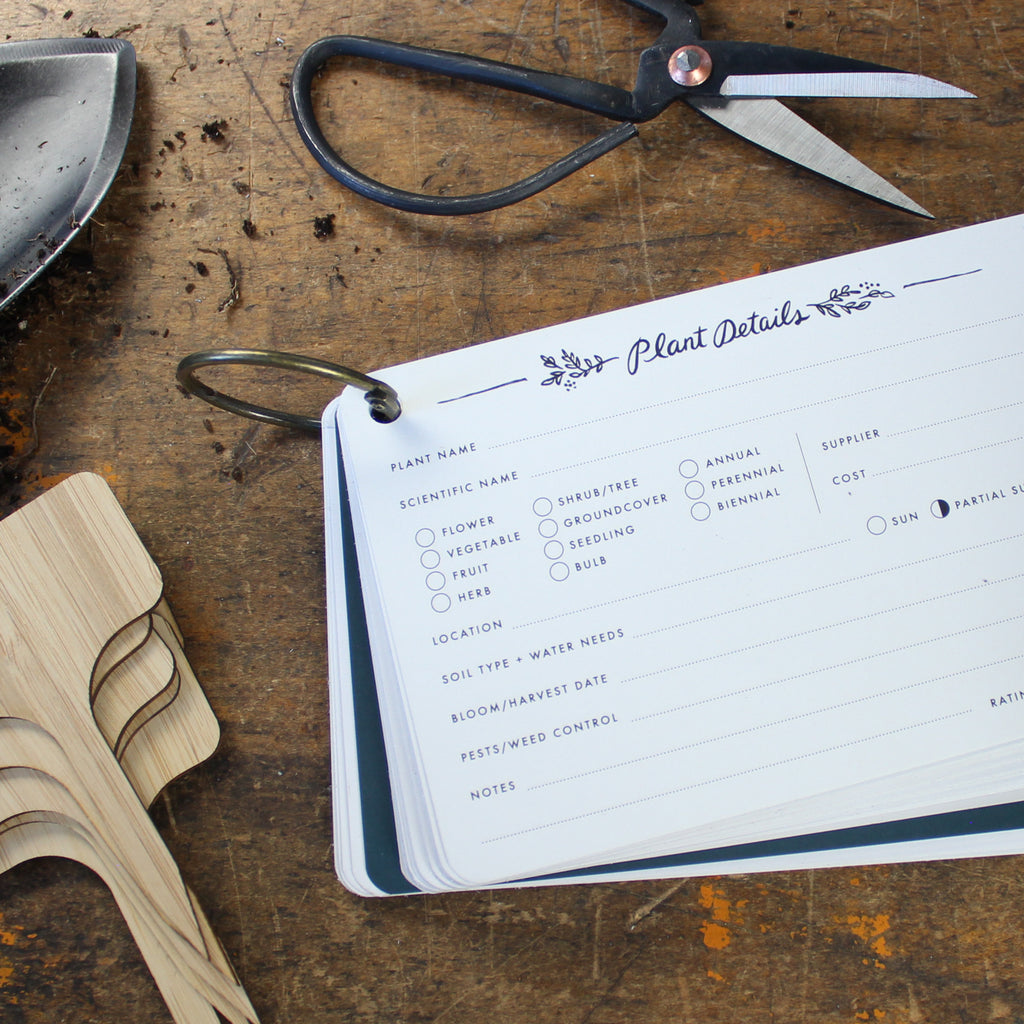 Plant Details
PLANT NAME
SCIENTIFIC NAME
FLOWER
VEGETABLE
FRUIT
HERB
SHRUB/TREE
GROUNDCOVER
SEEDLING
BULB
ANNUAL
PERENNIAL
BIENNIAL
SUPPLIER
COST
SUN PARTIAL
LOCATION
SOIL TYPE + WATER NEEDS
BLOOM/HARVEST DATE
PESTS/WEED CONTROL
NOTES